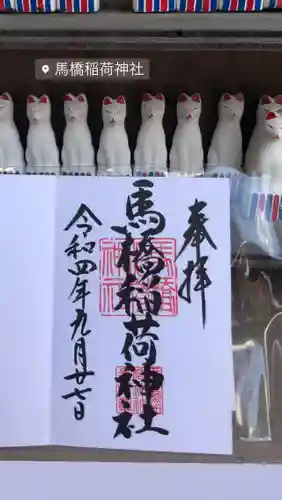 馬橋稲荷神社
奉拝
馬橋稲荷神社
令和四年九月廿七日